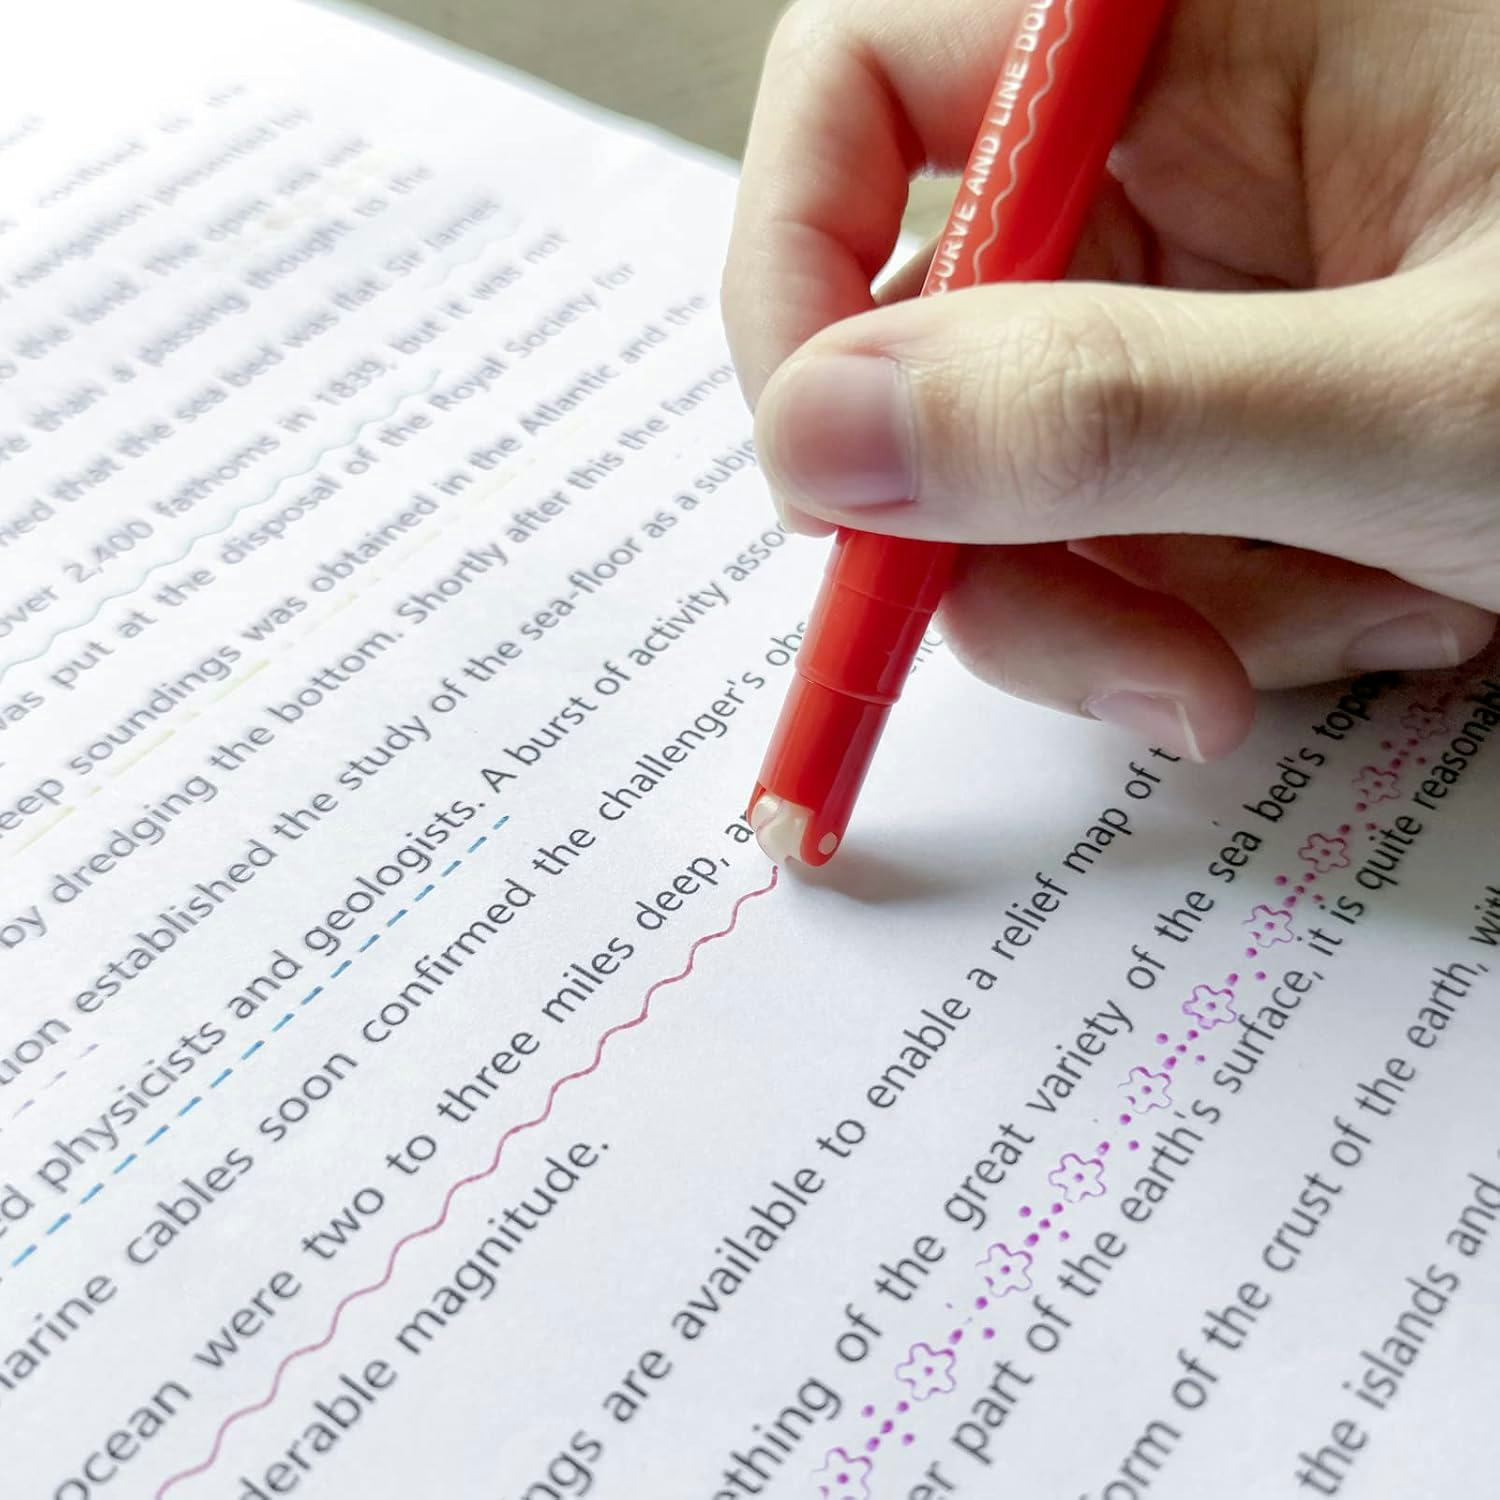 confined to the
navigation presented by
to the land. The open sea was
more than a passing thought to the
that the sea bed was flat. Sir James
over 2,400 fathoms in 1839, but it was not
was put at the disposal of the Royal Society for
deep soundings was obtained in the Atlantic and the
by dredging the bottom. Shortly after this the famou
tion established the study of the sea-floor as a subje
ed physicists and geologists. A burst of activity asso
marine cables soon confirmed the challenger's obs
ocean were two to three miles deep, a
derable magnitude.
ngs are available to enable a relief map of t
ething of the great variety of the sea bed's topo
er part of the earth's surface, it is quite reasonabl
orm of the crust of the earth, wit
the islands and
CURVE AND LINE DOU